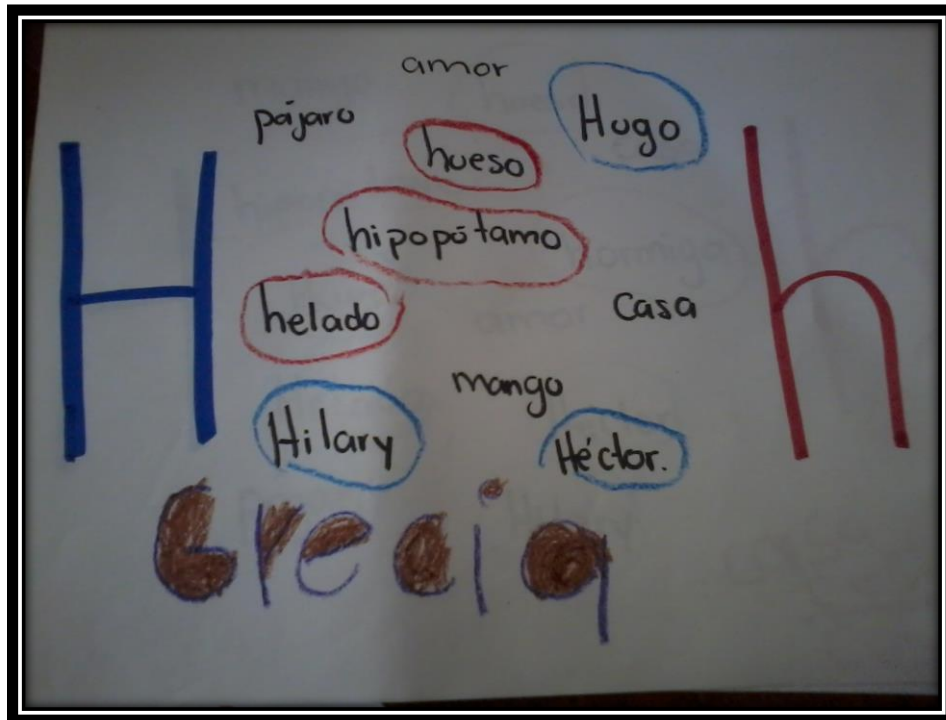 amor
pájaro
Hugo
hueso
H
h
hipopótamo
helado
casa
mango
Hilary
Héctor.
Grecia